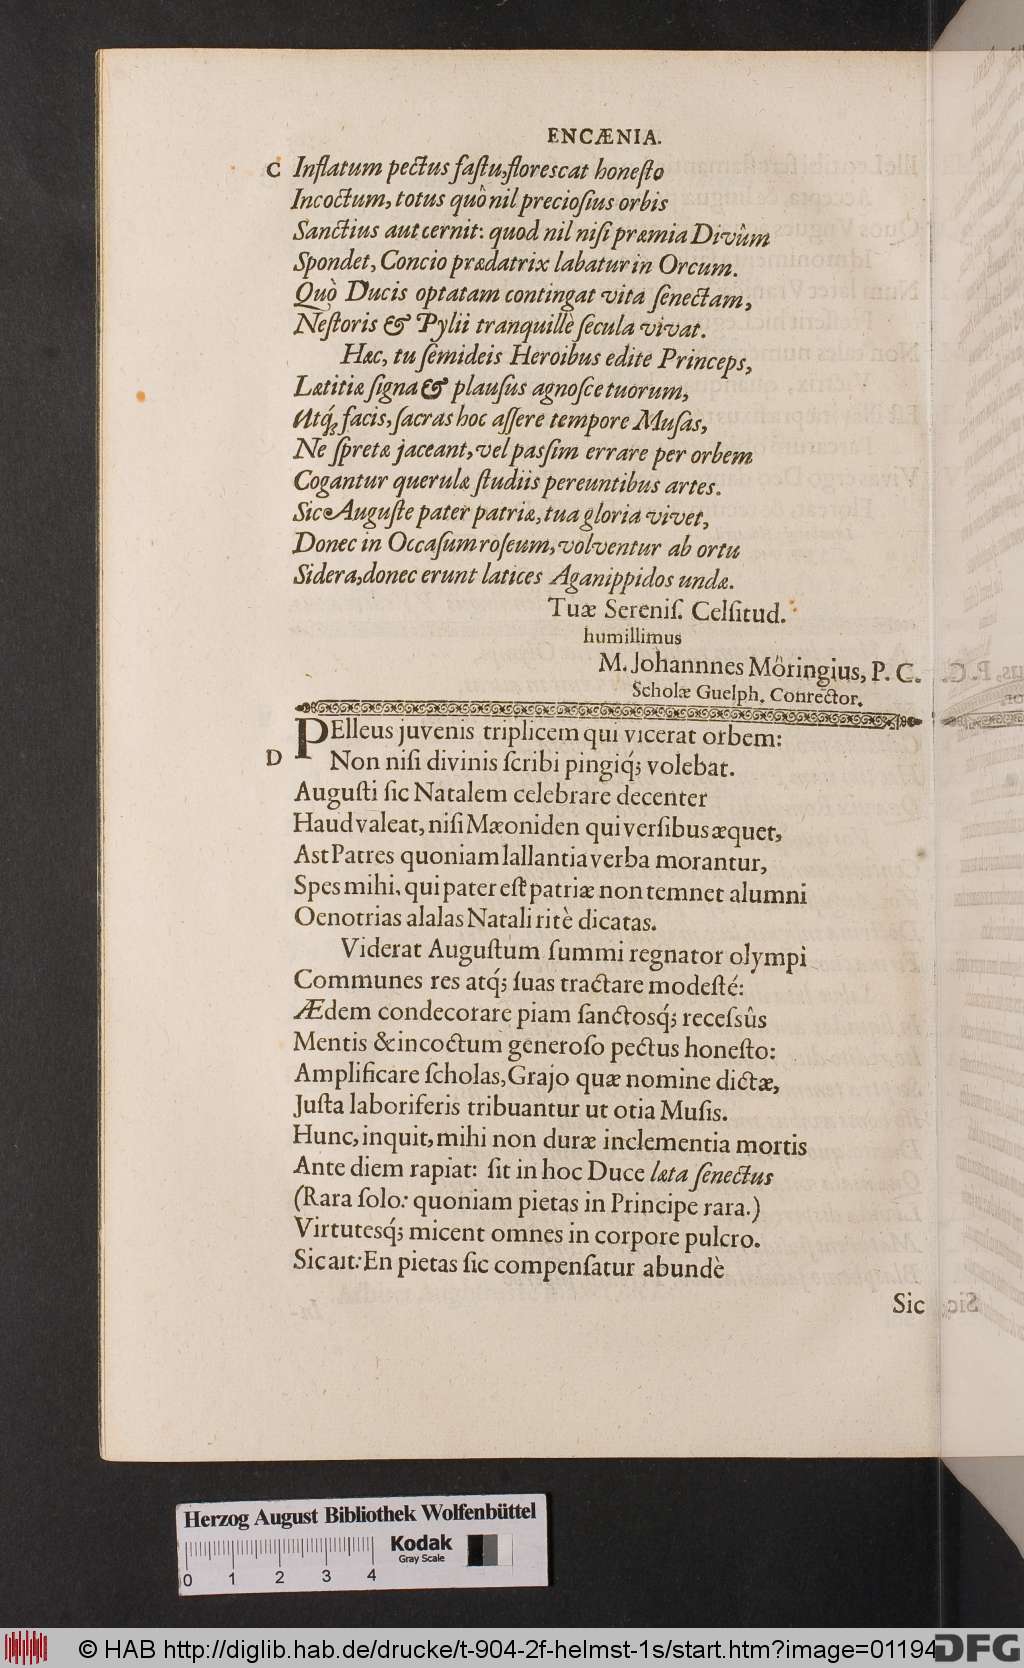 ENCÆNIA.
C Inflatum pectus faſtu, floreſcat honeſto
Incoctum, totus quô nil precioſius orbis
Sanctius aut cernit: quod nil niſi præmia Divûm
Spondet, Concio prædatrix labatur in Orcum.
Quò Ducis optatam contingat vita ſenectam,
Neſtoris & Pylii tranquillè ſecula vivat.
Hæc, tu ſemideis Heroibus edite Princeps,
Lætitiæ ſigna & plauſus agnoſce tuorum,
Utq́; facis, ſacras hoc aſſere tempore Muſas,
Ne ſpretæ jaceant, vel paſſim errare per orbem
Cogantur querulæ ſtudiis pereuntibus artes.
Sic Auguſte pater patriæ, tua gloria vivet,
Donec in Occaſum roſeum, volventur ab ortu
Sidera, donec erunt latices Aganippidos undæ.
Tuæ Sereniſ. Celſitud.
humillimus
M. Johannnes Möringius, P. C.
Scholæ Guelph. Conrector.
PElleus juvenis triplicem qui vicerat orbem:
D Non niſi divinis ſcribi pingiq́; volebat.
Auguſti ſic Natalem celebrare decenter
Haud valeat, niſi Mæoniden qui verſibus æquet,
Aſt Patres quoniam lallantia verba morantur,
Spes mihi, qui pater eſt patriæ non temnet alumni
Oenotrias alalas Natali ritè dicatas.
Viderat Auguſtum ſummi regnator olympi
Communes res atq́; ſuas tractare modeſté:
Ædem condecorare piam ſanctosq́; receſsûs
Mentis & incoctum generoſo pectus honeſto:
Amplificare ſcholas, Grajo quæ nomine dictæ,
Juſta laboriferis tribuantur ut otia Muſis.
Hunc, inquit, mihi non duræ inclementia mortis
Ante diem rapiat: ſit in hoc Duce læta ſenectus
(Rara ſolo: quoniam pietas in Principe rara.)
Virtutesq́; micent omnes in corpore pulcro.
Sic ait: En pietas ſic compenſatur abundè
Sic
Herzog August Bibliothek Wolfenbüttel
Kodak
Gray Scale
0 1 2 3 4
© HAB http://diglib.hab.de/drucke/t-904-2f-helmst-1s/start.htm?image=01194
DFG